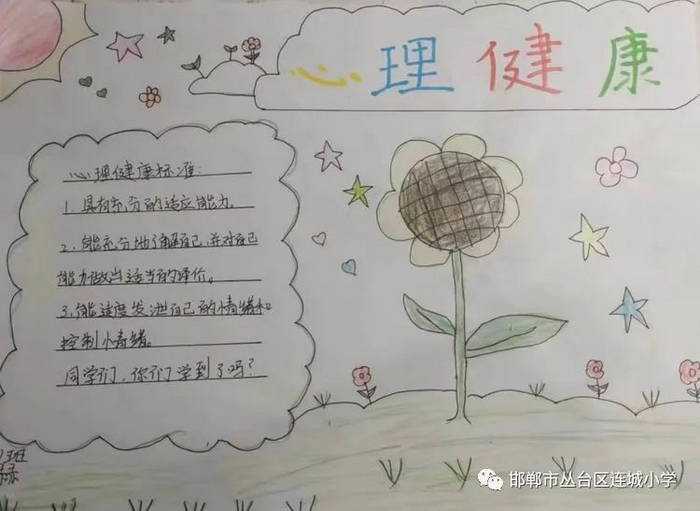 心理健康
心理健康标准:
1.具有充分的适应能力。
2.能充分地了解自己,并对自己
能力做出适当的评价。
3.能适度发泄自己的情绪和
控制情绪。
同学们,你们学到了吗?
班
邯郸市丛台区连城小学